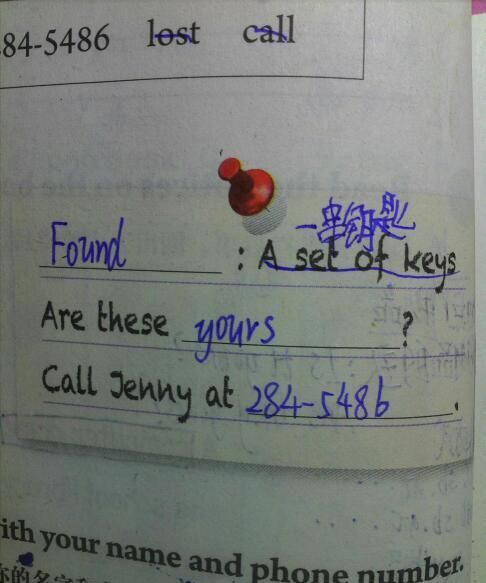 84-5486 lost call
一串钥匙
Found : A set of keys
Are these yours ?
Call Jenny at 284-5486.
ith your name and phone number.